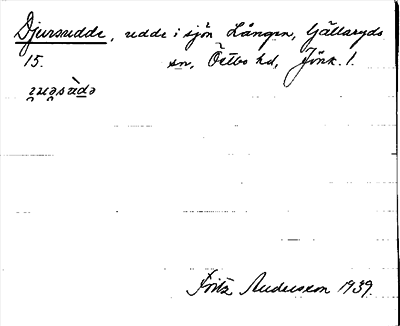 Djursudde, udde i sjön Lången, Gällaryds
15. sn, Östbo hd, Jönk. l.
Fritz Anderson 1939.